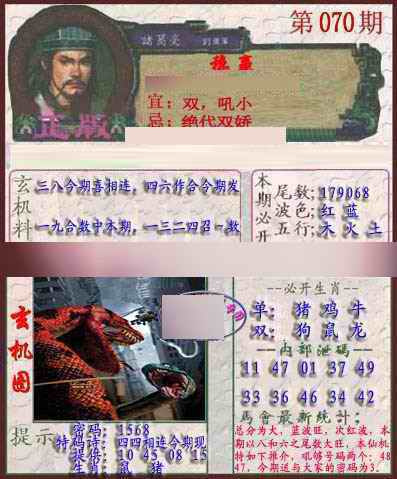 第070期
諸葛亮
稳赢
宜：双，吼小
忌：绝代双娇
正版
玄机料
三八今期喜相连，四六作合今期发
一九合数中本期，一三二四召一数
本期必开
尾数：179068
波色：红 蓝
五行：木 火 土
玄机图
--必开生肖--
单：猪 鸡 牛
双：狗 鼠 龙
--内部泄码--
11 47 01 37 49
33 36 46 34 42
馬會最新统计：
总分为大，蓝波旺，次红波，本
期以八和六之尾数大旺，本仙机
特如下推介，吼够号码两个：48
47，今期送与大家的密码为3．
提示
密码：1568
特码诗：四四相连今期现
提供：10 45 08 15
生肖：鼠 猪